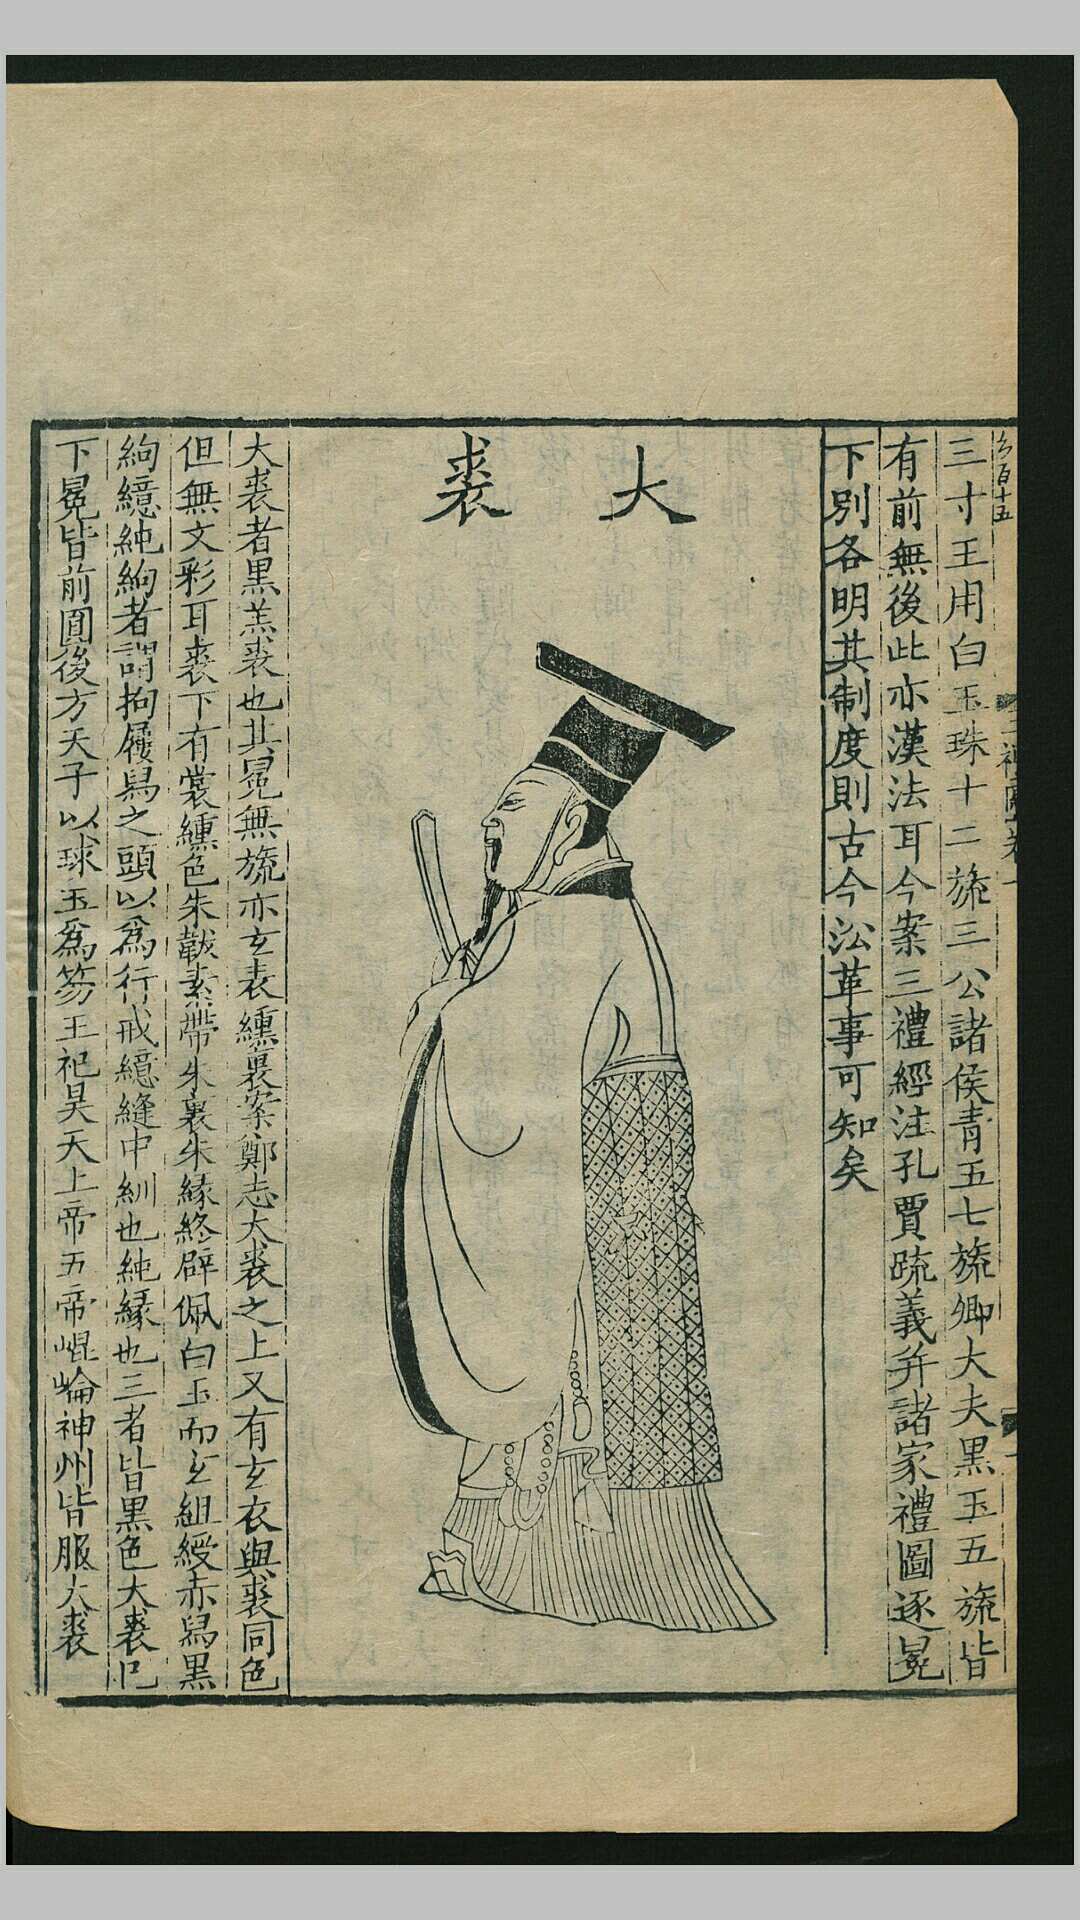 三寸王用白玉珠十二旒三公諸侯青五七旒卿大夫黑玉五旒皆
有前無後此亦漢法耳今案三禮經注孔賈疏義并諸家禮圖逐冕
下別各明其制度則古今沿革事可知矣
大裘
大裘者黑羔裘也其冕無旒亦玄表纁裏案鄭志大裘之上又有玄衣與裘同色
但無文彩耳裘下有裳纁色朱韍素帶朱裏朱緣終辟佩白玉而玄組綬赤舄黑
絇繶純絇者謂拘屨舄之頭以為行戒繶縫中紃也純緣也三者皆黑色大裘已
下冕皆前圓後方天子以球玉為笏王祀昊天上帝五帝崐崘神州皆服大裘